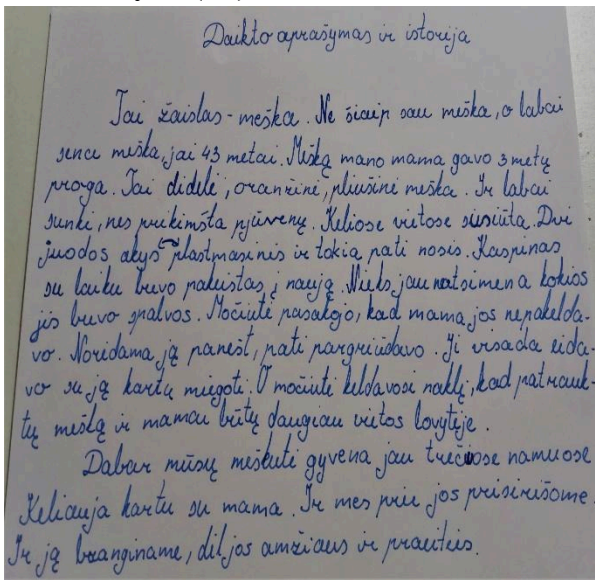 Daikto aprašymas ir istorija
Tai žaislas - meška. Ne šiaip sau meška, o labai
sena meška, jai 43 metai. Mešką mano mama gavo 3 metų
proga. Tai didelė, oranžinė, pliušinė meška. Ir labai
sunki, nes prikimšta pjūvenų. Keliose vietose susiūta. Dvi
juodos akys plastmasinis ir tokia pati nosis. Kaspinas
su laiku buvo pakeistas į naują. Nieks jau natsimena kokios
jis buvo spalvos. Močiutė pasakojo, kad mama jos nepakelda-
vo. Norėdama ją panešt, pati pargriūdavo. Ji visada eida-
vo su ją kartu miegoti. O močiutė keldavosi naktį, kad patrauk-
tų mešką ir mamai būtų daugiau vietos lovytėje.
Dabar mūsų meškutė gyvena jau trečiuose namuose
Keliauja kartu su mama. Ir mes prie jos prisirišome.
Ir ją branginame, dėl jos amžiaus ir praeities.